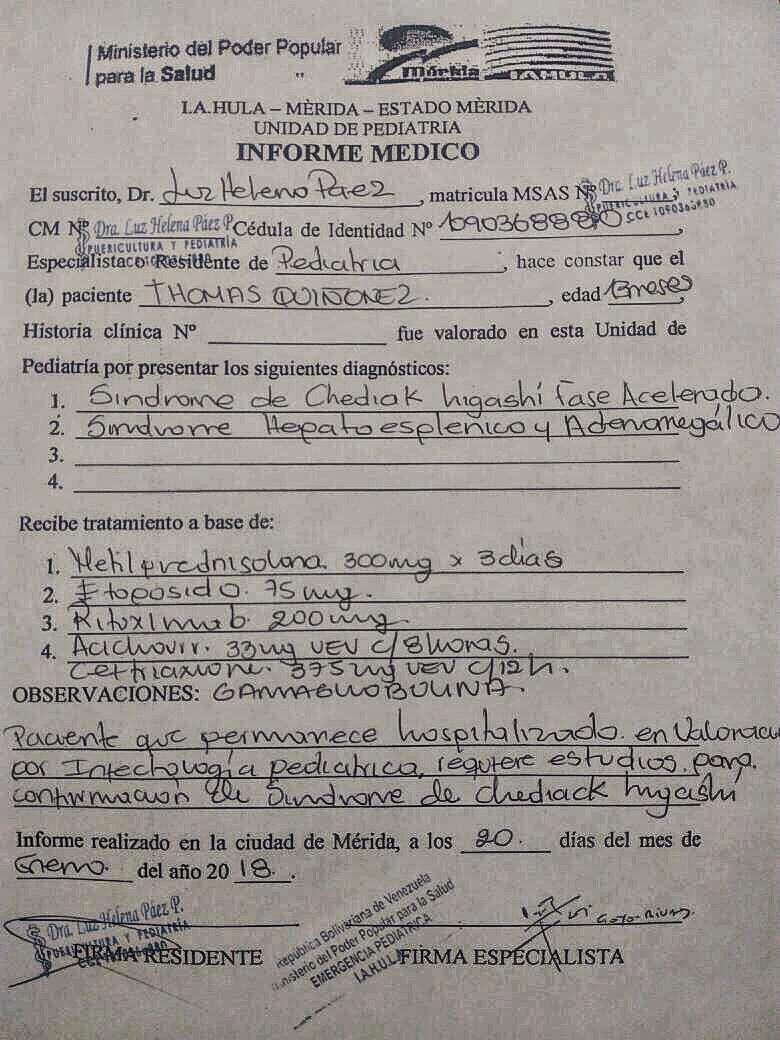 Ministerio del Poder Popular
para la Salud
Mérida
I.A.HULA
I.A.HULA – MÈRIDA – ESTADO MÈRIDA
UNIDAD DE PEDIATRIA
INFORME MEDICO
El suscrito, Dr. Luz Helena Paez, matricula MSAS Nº Dra. Luz Helena Páez P.
PUERICULTURA Y PEDIATRÍA
CM Nº Dra. Luz Helena Páez P. Cédula de Identidad Nº 1090368880
PUERICULTURA Y PEDIATRÍA
Especialista o Residente de Pediatria, hace constar que el
(la) paciente THOMAS QUIÑONEZ., edad 13meses
Historia clínica Nº fue valorado en esta Unidad de
Pediatría por presentar los siguientes diagnósticos:
1. Sindrome de Chediak higashí fase Acelerada.
2. Sindrome Hepatoesplenico y Adenomegálico
3.
4.
Recibe tratamiento a base de:
1. Metilprednisolona. 300mg x 3dias
2. Etoposido. 75mg.
3. Rituximab. 200mg.
4. Aciclovir. 33mg VEV c/8horas.
Ceftriaxone. 375mg VEV c/12h.
OBSERVACIONES: GAMMAGLOBULINA.
Paciente que permanece hospitalizado. en Valoracu
por Infectología pediatrica, requiere estudios. para.
confirmación de Sindrome de chediack higashí
Informe realizado en la ciudad de Mérida, a los 20. días del mes de
Enero. del año 2018.
Dra. Luz Helena Páez P.
PUERICULTURA Y PEDIATRÍA
FIRMA RESIDENTE
República Bolivariana de Venezuela
Ministerio del Poder Popular para la Salud
EMERGENCIA PEDIATRICA
I.A.H.U.L.A
FIRMA ESPECIALISTA